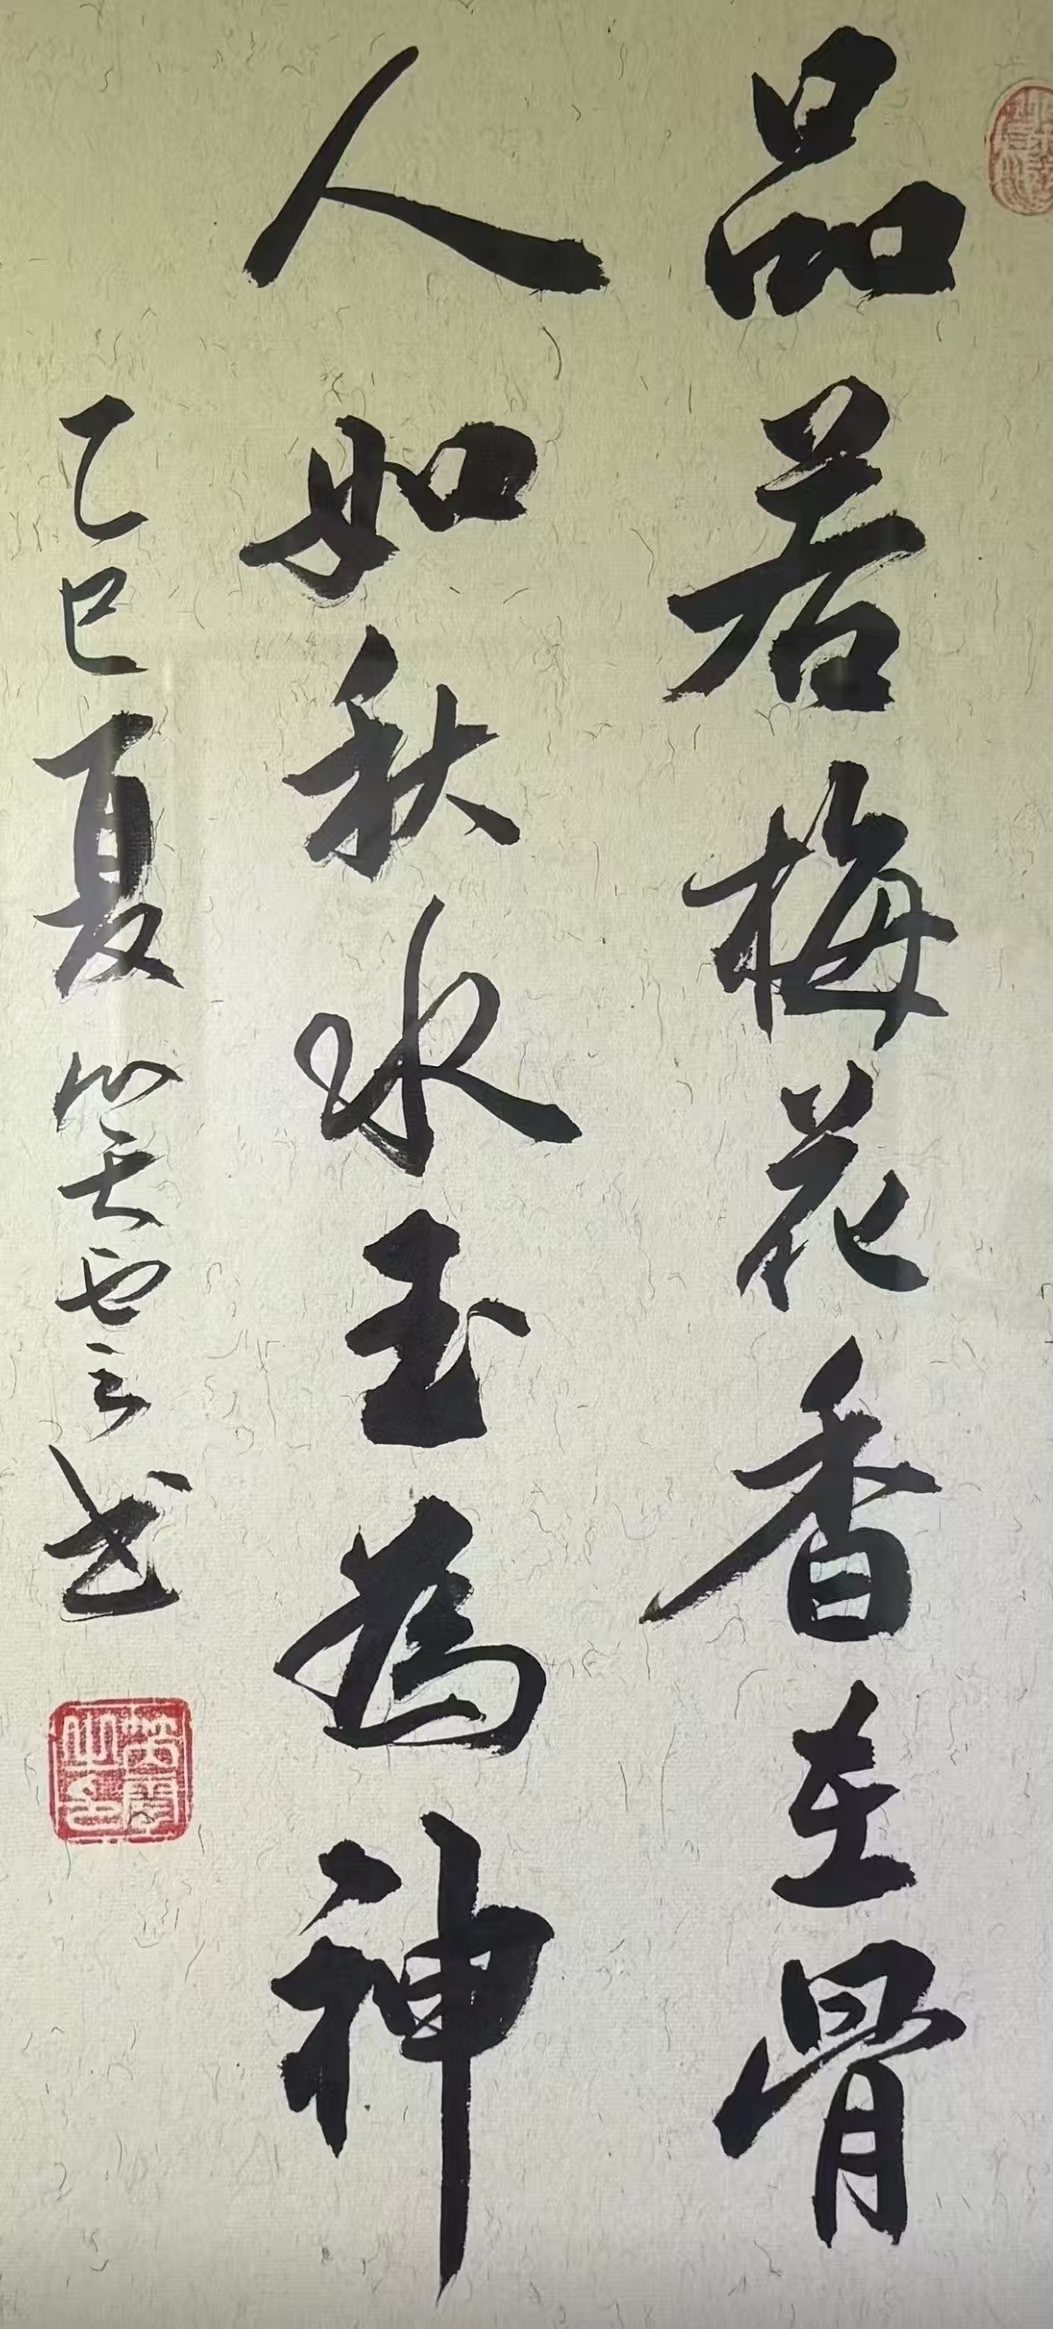 品若梅花香在骨
人如秋水玉為神
乙巳夏笑云书